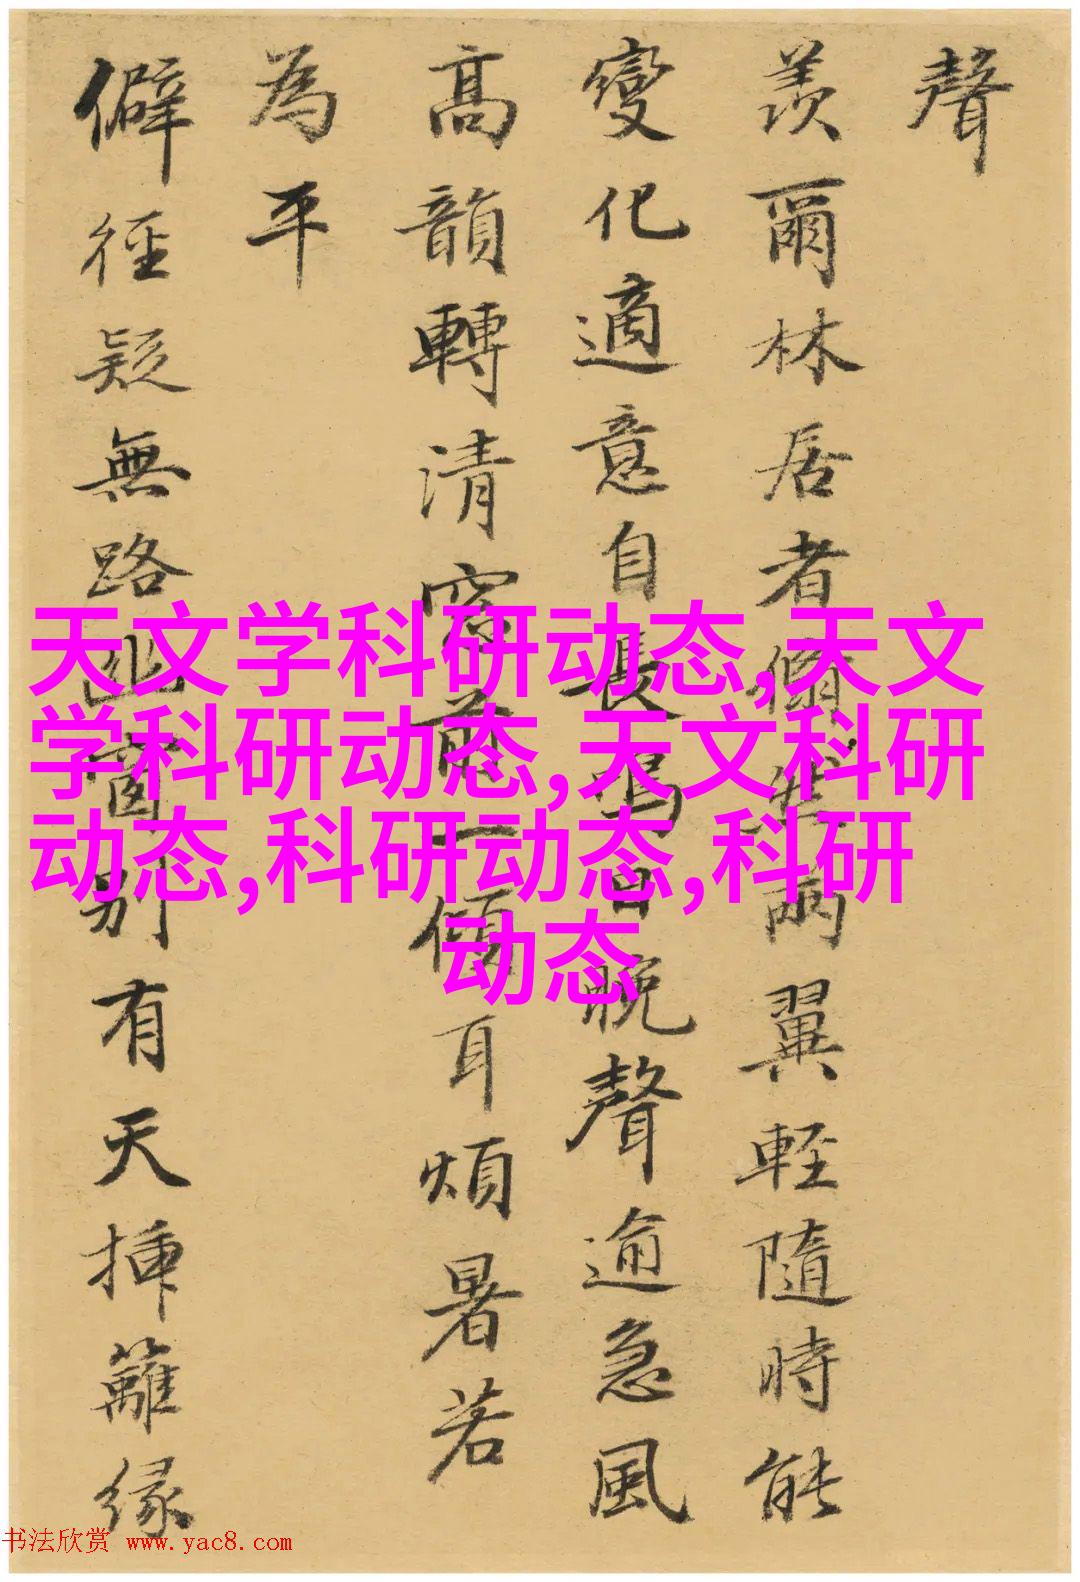 聲
羨爾林居者翛然兩翼輕隨時能
變化適意自長鳴日晚聲逾急風
高韻轉清窓前一傾耳煩暑若
為平
僻徑疑無路幽窗別有天插籬緣
天文学科研动态,天文
学科研动态,天文科研
动态,科研动态,科研
动态
书法欣赏 www.yac8.com